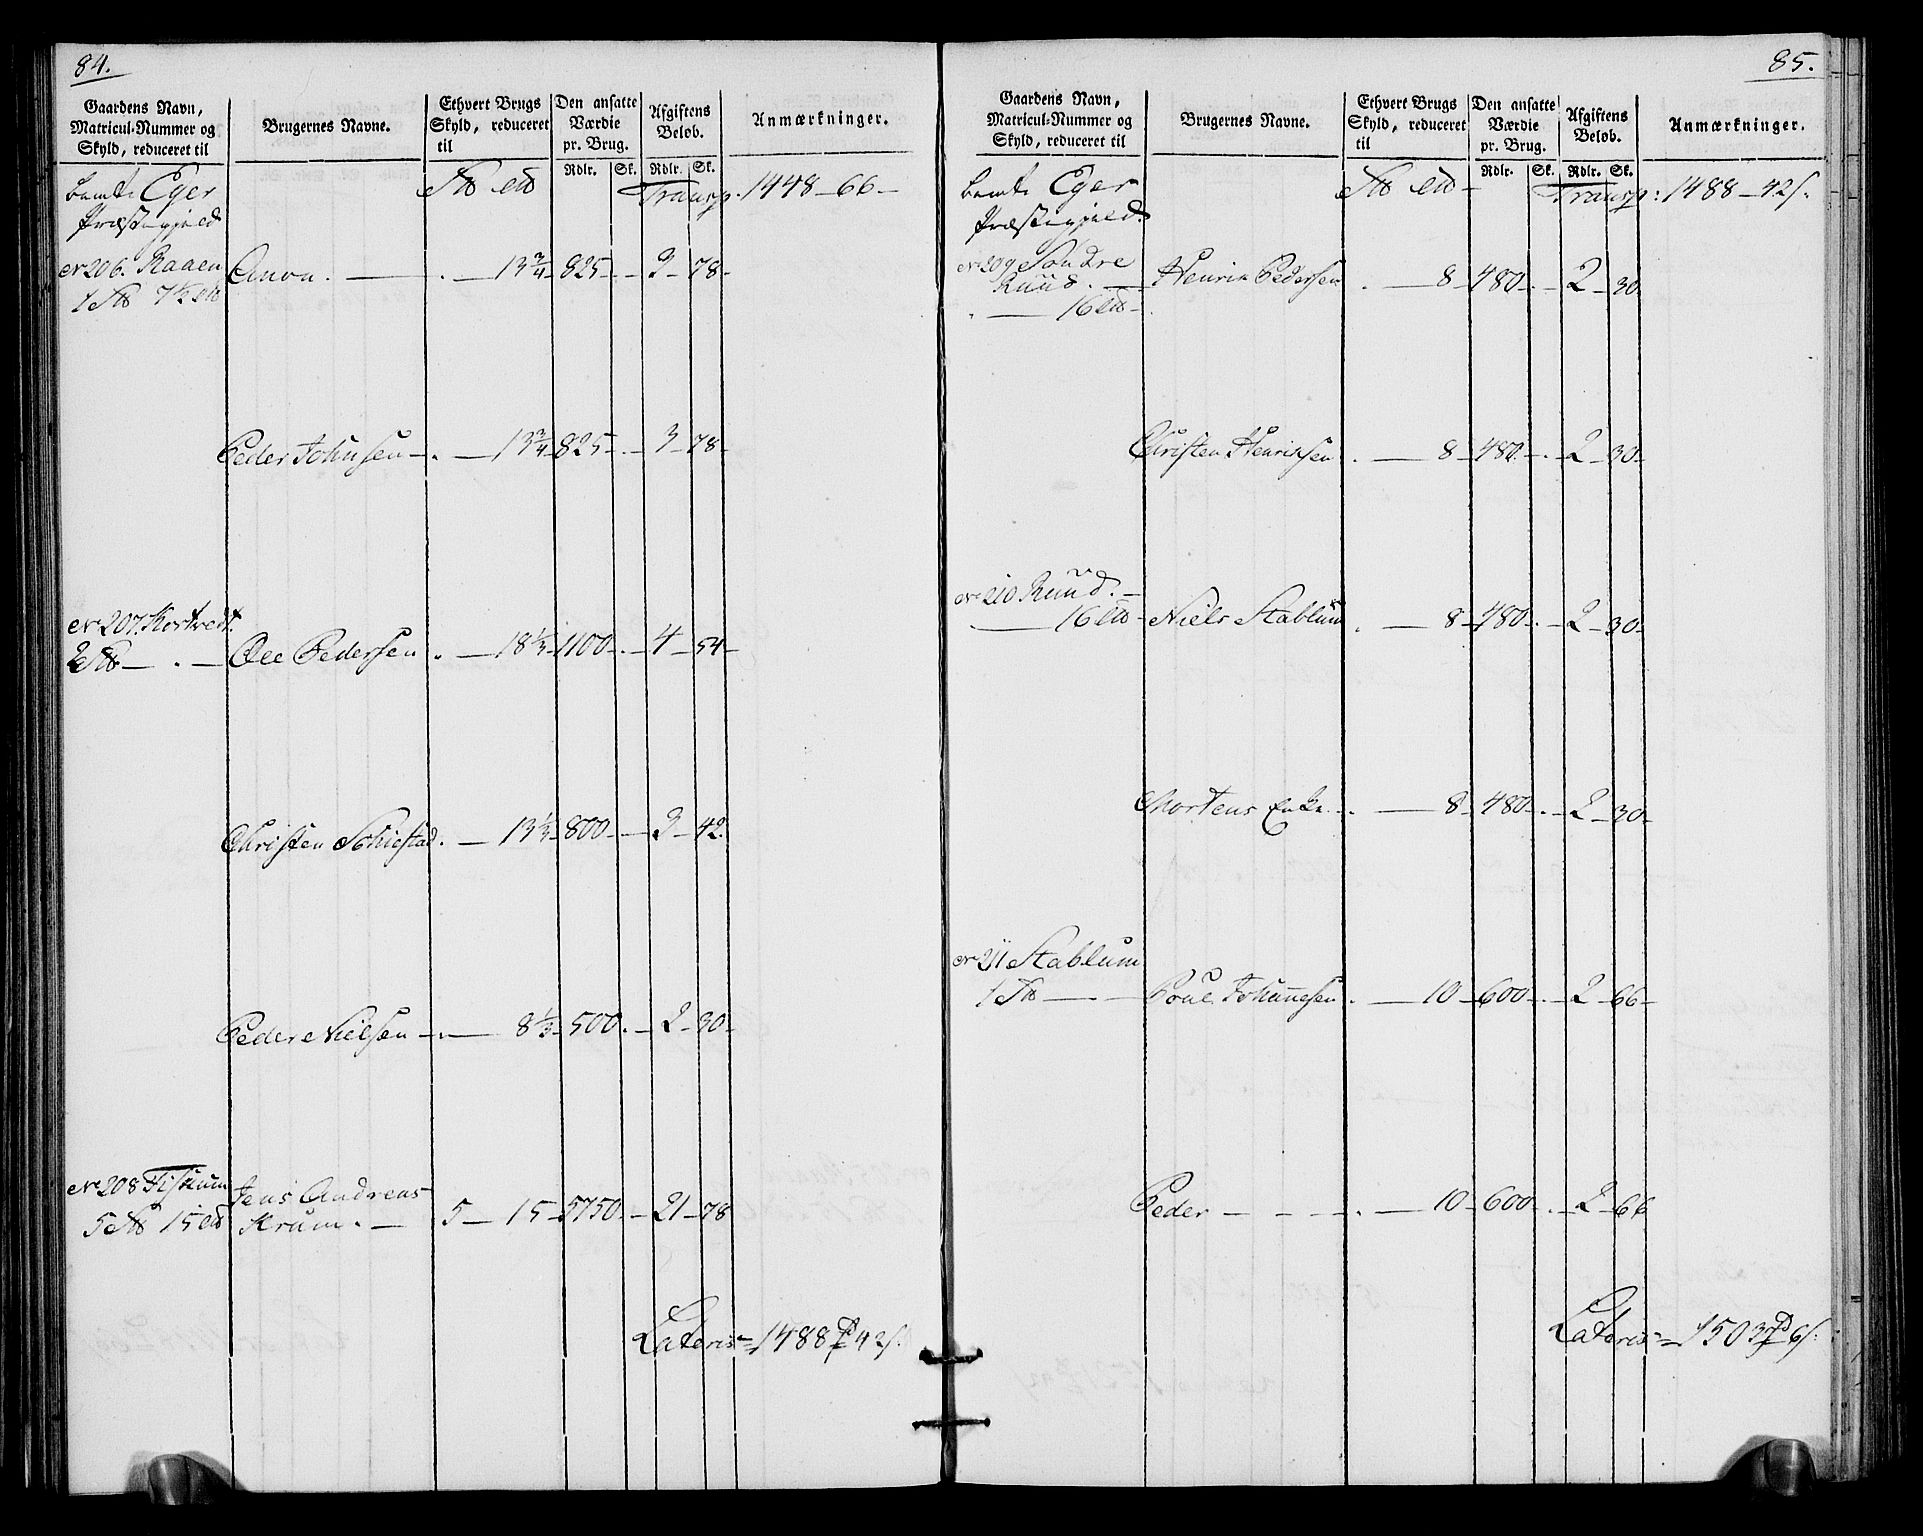 84.
Gaardens Navn, Matricul-Nummer og Skyld, reduceret til
Brugernes Navne.
Ethvert Brugs Skyld, reduceret til
Den ansatte Værdie pr. Brug.
Afgiftens Beløb.
Anmærkninger.
Rdlr. Sk. Rdlr. Sk.
bemte Eger Transp. 1448 - 66 -
Præstegjeld
No 206. Raaen Amon. 13 3/4 - 825 - 3 - 78 -
1 7 1/2
Peder Johnsen 13 3/4 825 - 3 - 78 -
No 207. Kortvedt.
2 Ole Pedersen 18 1/3 - 1100 - 4 - 54 -
Christen 13 1/3 - 800 - 3 - 42.
Peder Nielsen 8 1/3 - 500 - 2 - 30 -
No 208 Fiskum Jens Andreas
5 15 Krum 5 - 15 - 5750 - 21 - 78
Lateris = 1488 42 s.
85.
Gaardens Navn, Matricul-Nummer og Skyld, reduceret til
Brugernes Navne.
Ethvert Brugs Skyld, reduceret til
Den ansatte Værdie pr. Brug.
Afgiftens Beløb.
Anmærkninger.
Rdlr. Sk. Rdlr. Sk.
bemte Eger Transp: 1488 - 42 s.
Præstegjeld
No 209 Søndre
Ruud. Henrik Pedersen 8 - 480 - 2 - 30
16
Christen Henrichsen 8 - 480 - 2 - 30 -
No 210 Ruud.
16 Niels Stablum 8 - 480 - 2 - 30 -
Mortens Enke. 8 - 480 - 2 - 30 -
No 211 Stablum
1 Poul Johannesen 10 - 600 - 2 - 66 -
Peder 10 - 600 - 2 - 66
Lateris = 1503 6 s.